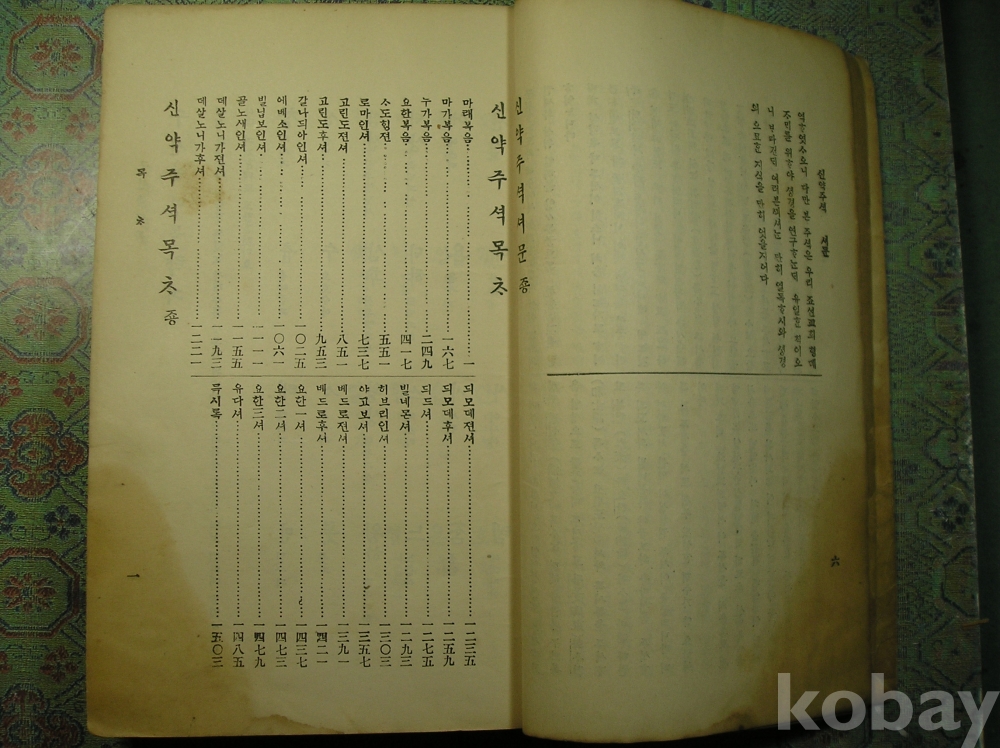 신약주석 서문
역하엿소오니 다만 본 주석은 우리 죠션교회 형뎨
의 요로운 지식을 만히 엇을지어다
六
신약주셕녀문죵
신약주셕목츠
마태복음 一
마가복음 一六七
누가복음 二四九
요한복음 四一七
사도힝젼 五五一
로마인셔 七三七
고린도젼셔 八五一
고린도후셔 九五三
갈나듸아인셔 一〇二五
에베소인셔 一〇六一
빌닙보인셔 一一一一
골노새인셔 一一五五
데살노니가젼셔 一一九三
데살노니가후셔 一二二一
듸모데젼셔 一二三五
듸모데후셔 一二五九
듸드셔 一二七五
빌네몬셔 一二九三
히브리인셔 一三〇三
야고보셔 一三五七
베드로젼셔 一三九一
베드로후셔 一四二一
요한一셔 一四三七
요한二셔 一四七三
요한三셔 一四七九
유다셔 一四八五
묵시록 一五〇三
신약주셕목츠죵
목 츠
一
kobay